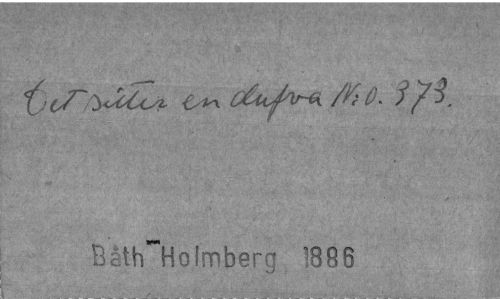 Det sitter en dufva N:o. 373.
Båth-Holmberg 1886